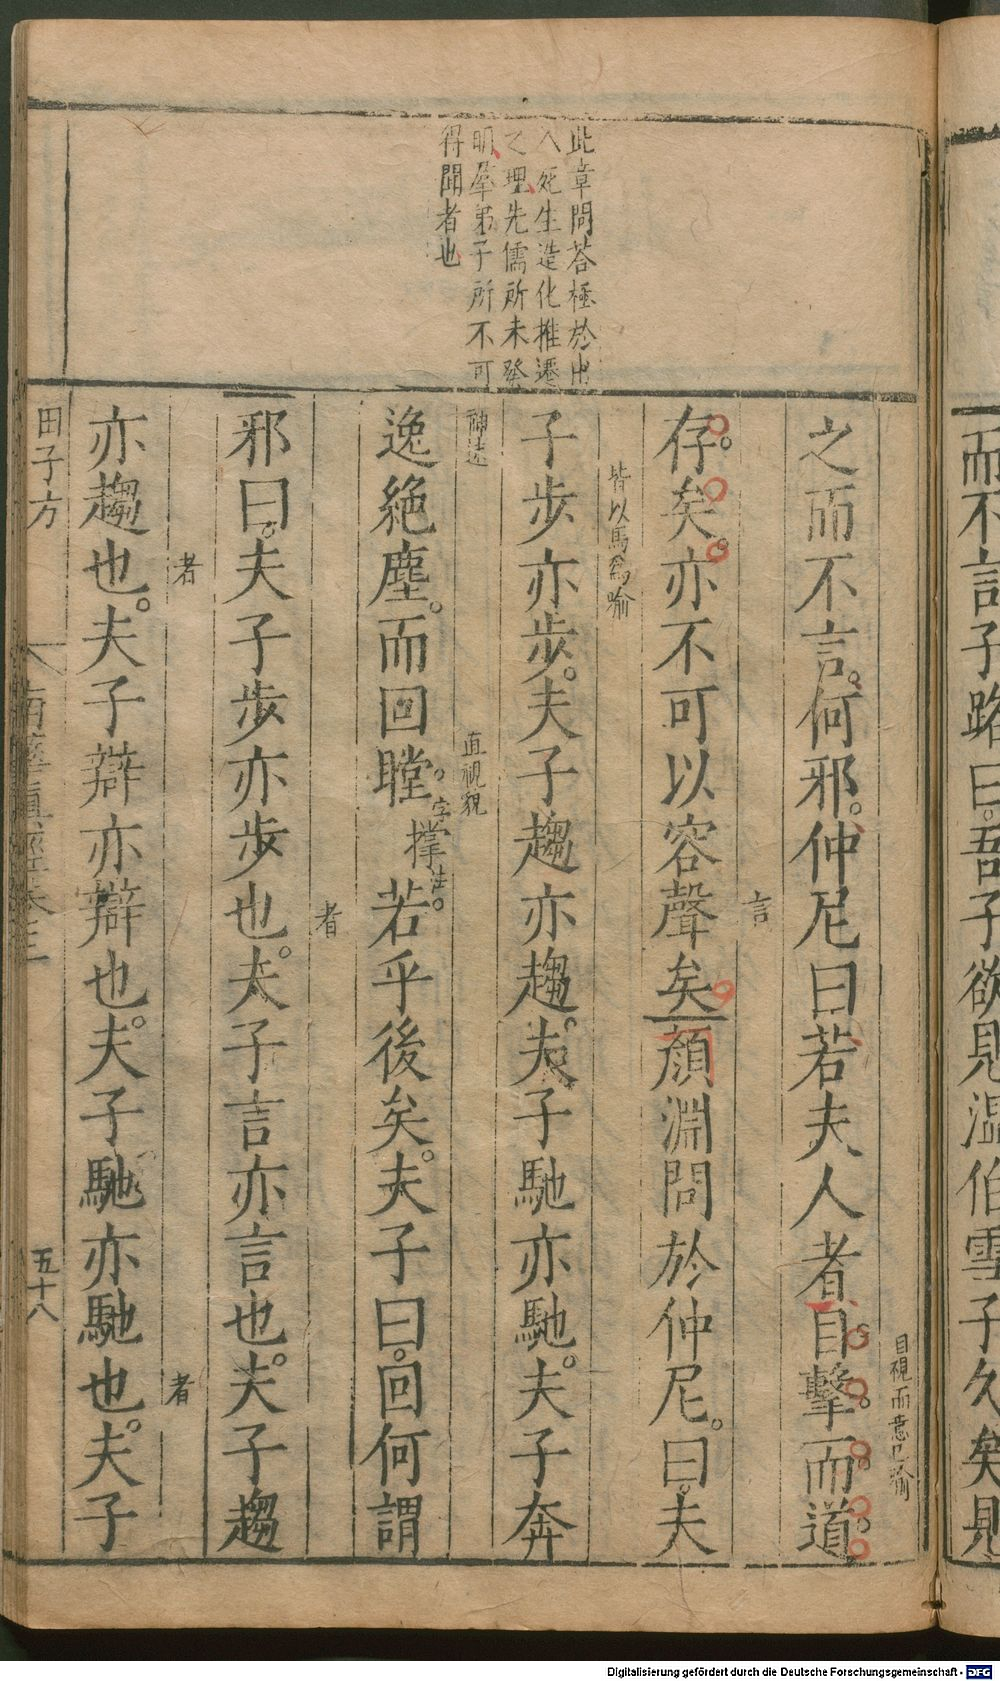 而不言子路曰。吾子欲見溫伯雪子久矣見
此章問荅極於出
入死生造化推遷
之理先儒所未發
明羣弟子所不可
得聞者也
目視而意已喻
之而不言。何邪。仲尼曰若夫人者目擊而道。
言
存。矣。亦不可以容聲矣顏淵問於仲尼。曰。夫
皆以馬為喻
子步亦步。夫子趨亦趨。夫子馳亦馳。夫子奔
神速
直視貌
逸絕塵。而回瞠。撑字法。若乎後矣。夫子曰。回何謂
者
邪曰。夫子步亦步也。夫子言亦言也。夫子趨
者
者
亦趨也。夫子辯亦辯也。夫子馳亦馳也。夫子
田子方
南華真經卷三
五十八
Digitalisierung gefördert durch die Deutsche Forschungsgemeinschaft - DFG